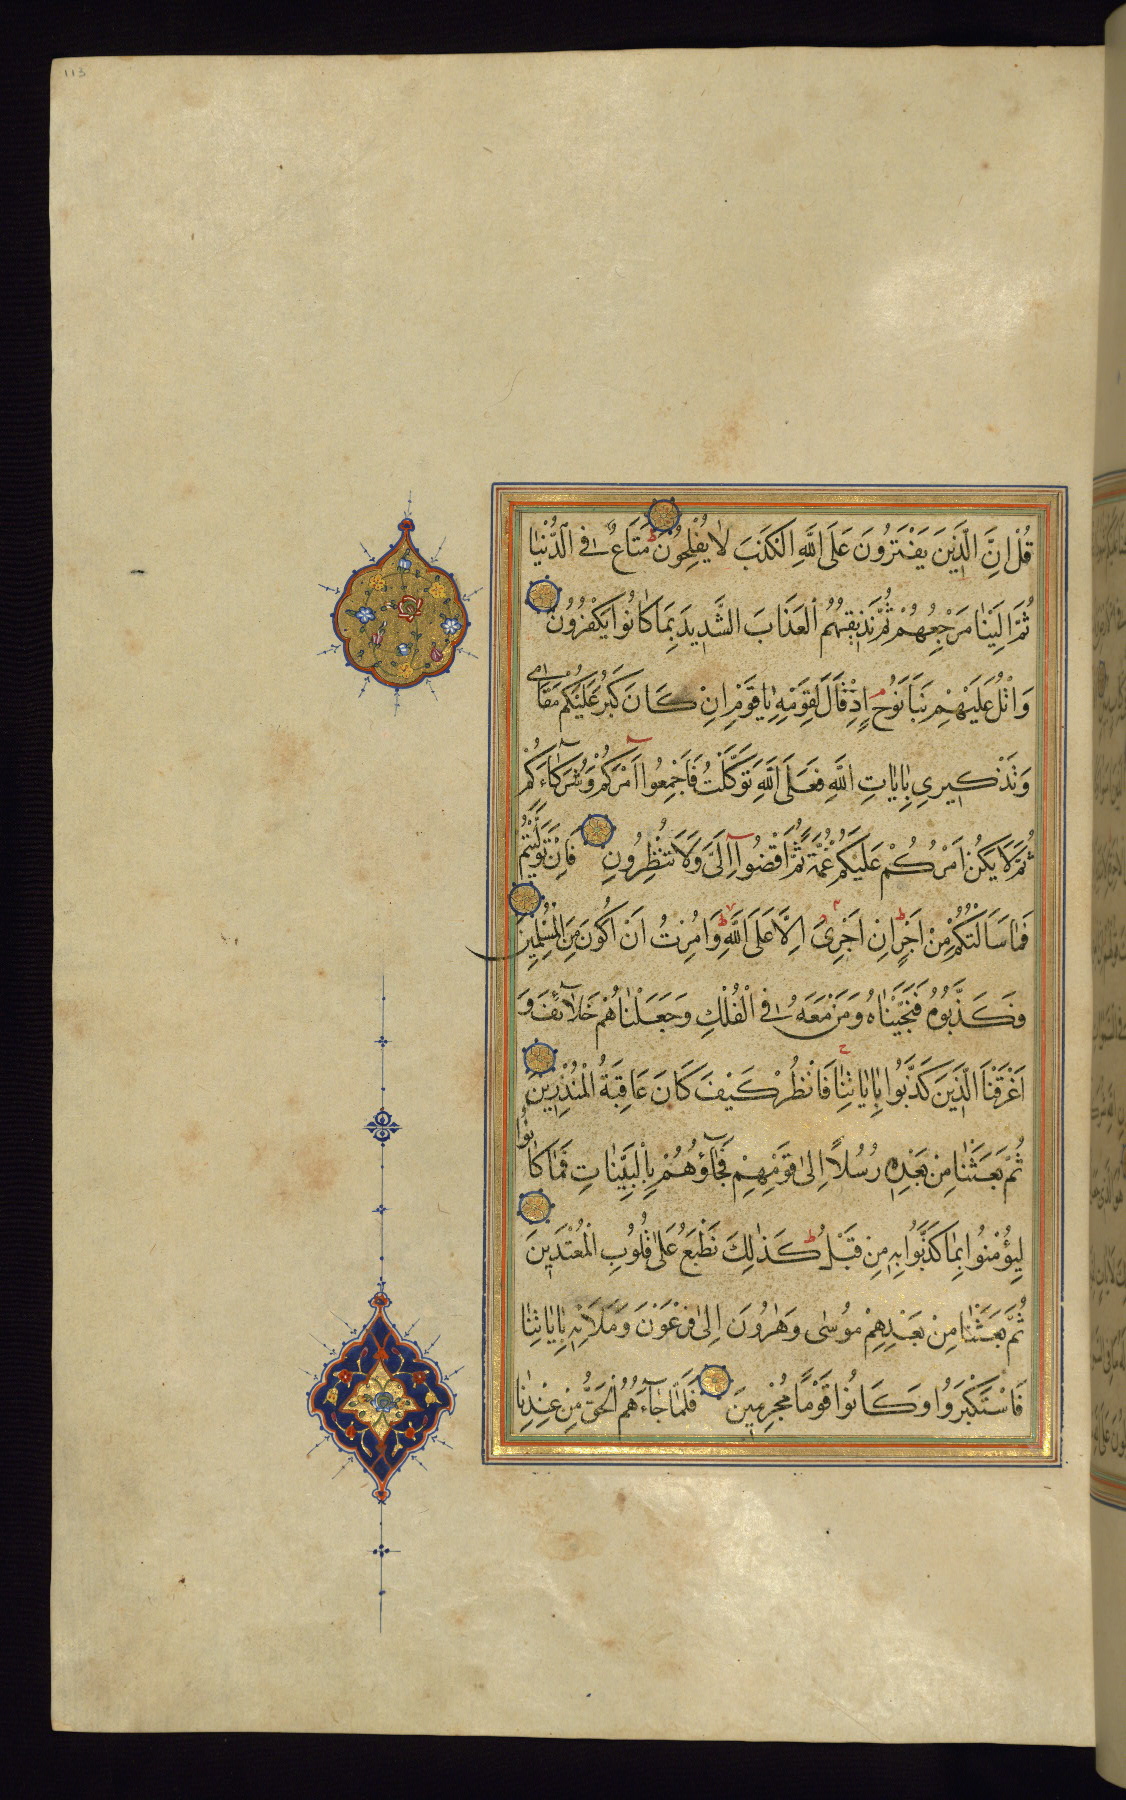 113
قُلْ اِنَّ الَّذِينَ يَفْتَرُونَ عَلَى اللّٰهِ الْكَذِبَ لَا يُفْلِحُونَ ط مَتَاعٌ فِي الدُّنْيَا
ثُمَّ اِلَيْنَا مَرْجِعُهُمْ ثُمَّ نُذِيقُهُمُ الْعَذَابَ الشَّدِيدَ بِمَا كَانُوا يَكْفُرُونَ
وَاتْلُ عَلَيْهِمْ نَبَاَ نُوحٍ م اِذْ قَالَ لِقَوْمِهِ يَا قَوْمِ اِنْ كَانَ كَبُرَ عَلَيْكُمْ مَقَامِي
وَتَذْكِيرِي بِاٰيَاتِ اللّٰهِ فَعَلَى اللّٰهِ تَوَكَّلْتُ فَاَجْمِعُوا اَمْرَكُمْ وَشُرَكَاءَكُمْ
ثُمَّ لَا يَكُنْ اَمْرُكُمْ عَلَيْكُمْ غُمَّةً ثُمَّ اقْضُوا اِلَيَّ وَلَا تُنْظِرُونِ فَاِنْ تَوَلَّيْتُمْ
فَمَا سَاَلْتُكُمْ مِنْ اَجْرٍ ط اِنْ اَجْرِيَ اِلَّا عَلَى اللّٰهِ وَاُمِرْتُ اَنْ اَكُونَ مِنَ الْمُسْلِمِينَ
فَكَذَّبُوهُ فَنَجَّيْنَاهُ وَمَنْ مَعَهُ فِي الْفُلْكِ وَجَعَلْنَاهُمْ خَلَائِفَ وَ
اَغْرَقْنَا الَّذِينَ كَذَّبُوا بِاٰيَاتِنَا ج فَانْظُرْ كَيْفَ كَانَ عَاقِبَةُ الْمُنْذَرِينَ
ثُمَّ بَعَثْنَا مِنْ بَعْدِهِ رُسُلًا اِلٰى قَوْمِهِمْ فَجَآؤُهُمْ بِالْبَيِّنَاتِ فَمَا كَانُوا
لِيُؤْمِنُوا بِمَا كَذَّبُوا بِهِ مِنْ قَبْلُ ط كَذٰلِكَ نَطْبَعُ عَلٰى قُلُوبِ الْمُعْتَدِينَ
ثُمَّ بَعَثْنَا مِنْ بَعْدِهِمْ مُوسٰى وَهٰرُونَ اِلٰى فِرْعَوْنَ وَمَلَائِهِ بِاٰيَاتِنَا
فَاسْتَكْبَرُوا وَكَانُوا قَوْمًا مُجْرِمِينَ فَلَمَّا جَآءَهُمُ الْحَقُّ مِنْ عِنْدِنَا